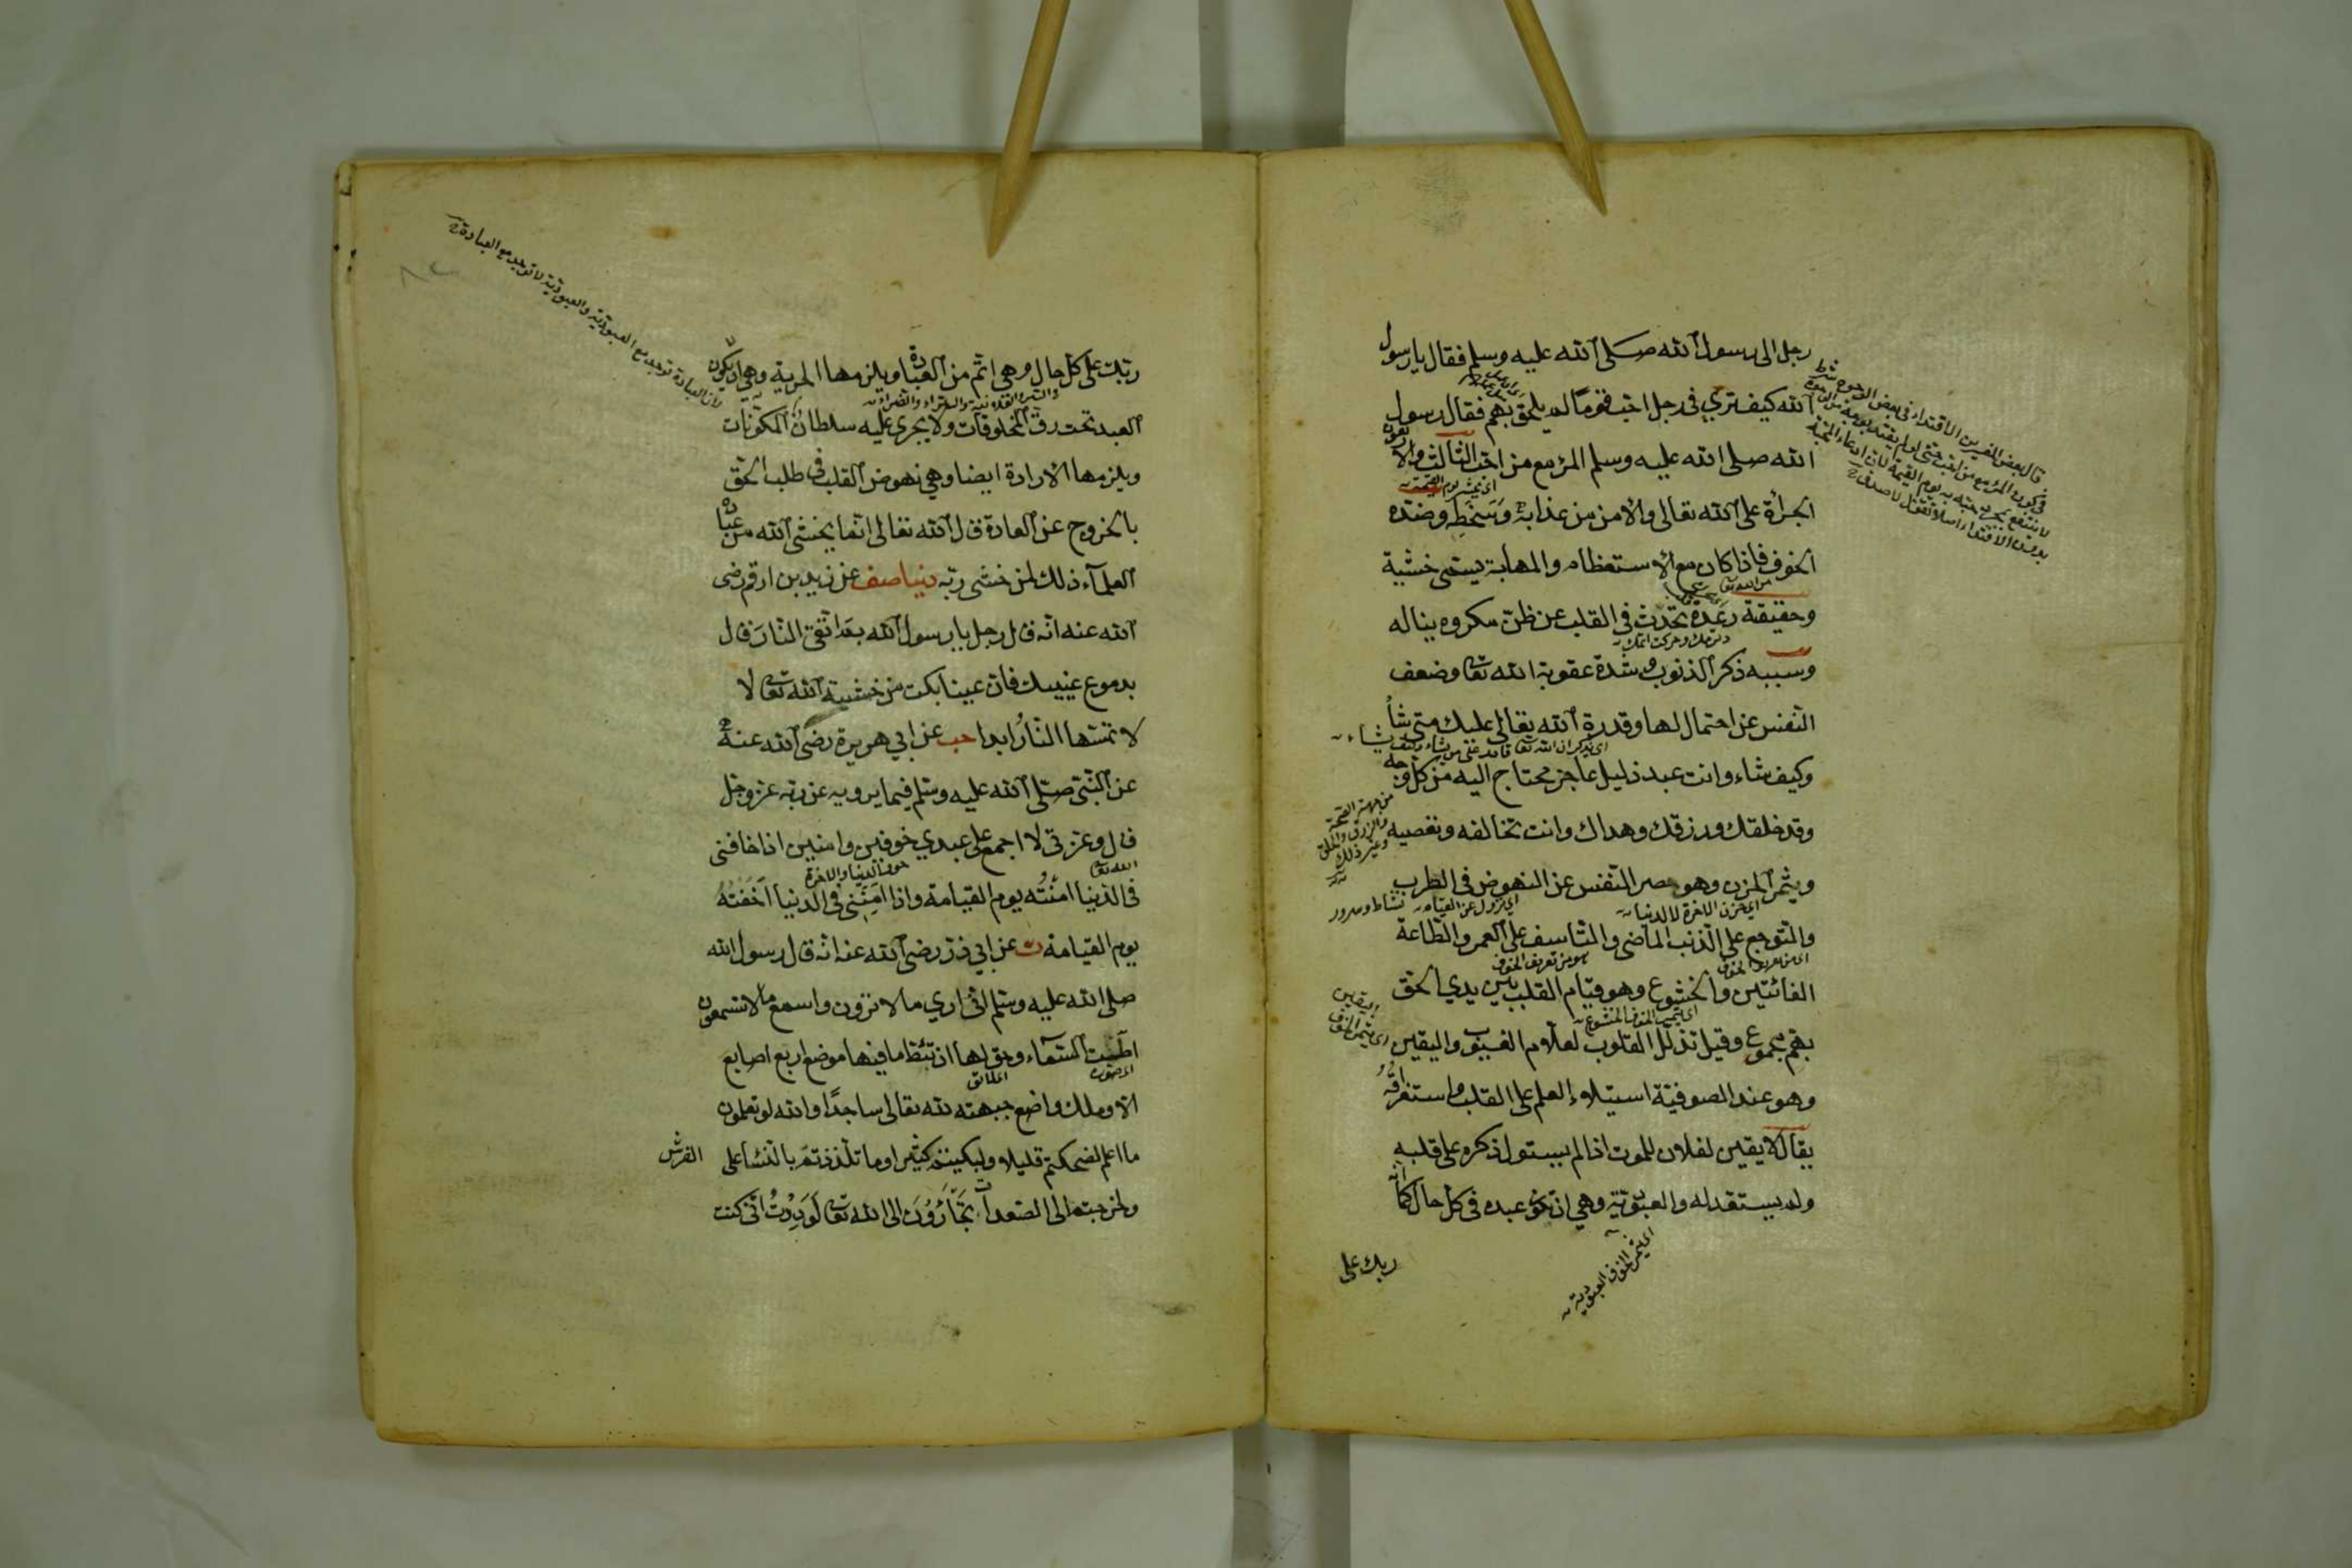 رجل الى رسول الله صلى الله عليه وسلم فقال يا رسول
الله كيف ترى فى رجل احب قوما لم يلحق بهم فقال رسول
الله صلى الله عليه وسلم المرء مع من احب الثالث والاربعون
الجرأة على الله تعالى والأمن من عذابه وسخطه وضده
الخوف فاذا كان مع الاستعظام والمهابة يسمى خشية
وحقيقة رعدة تحدث فى القلب عن ظن مكروه يناله
وسببه ذكر الذنوب وشدة عقوبة الله تعا وضعف
النفس عن احتمال لها وقدرة الله تعالى عليك متى شاء
وكيف شاء وانت عبد ذليل عاجز محتاج اليه من كل وجه
وقد خلقك ورزقك وهداك وانت تخالفه وتعصيه
ويثمر الحزن وهو حصر النفس عن النهوض فى الطرب
والتوجع على الذنب الماضى والتاسف على العمر والطاعة
الفائتين والخشوع وهو قيام القلب بين يدي الحق
بهم مجموع وقيل تذلل القلوب لعلام الغيوب واليقين
وهو عند الصوفية استيلاء العلم على القلب واستغراقه
يقال لا يقين لفلان للموت اذا لم يستول ذكره على قلبه
ولم يستعد له والعبودية وهي ان تكون عبده فى كل حال كما انه
ربك على
قال بعض المفسرين الاقتداء فى بعض الوجوه شرط
من جهة الصحة
والرزق والخلق
وغير ذلك
نشاط وسرور
اى حزن الاخرة لا الدنيا
اى يثمر الخوف الخشوع
اى يثمر الخوف اليقين
اى يثمر الخوف العبودية
ربك على كل حال وهي اتم من العبادة ويلزمها الحرية وهي ان لا يكون
العبد تحت رق المخلوقات ولا يجرى عليه سلطان المكونات
ويلزمها الارادة ايضا وهي نهوض القلب فى طلب الحق
بالخروج عن العادة قال الله تعالى انما يخشى الله من عباده
العلماء ذلك لمن خشى ربه دنيا صف عن زيد بن ارقم رضى
الله عنه انه قال رجل يا رسول الله بم اتقى النار قال
بدموع عينيك فان عينا بكت من خشية الله تعا لا
لا تمسها النار ابدا حب عن ابي هريرة رضى الله عنه
عن النبي صلى الله عليه وسلم فيما يرويه عن ربه عز وجل
قال وعزتى لا اجمع على عبدي خوفين وامنين اذا خافنى
فى الدنيا امنته يوم القيامة واذا امننى فى الدنيا اخفته
يوم القيامة ت عن ابي ذر رضى الله عنه انه قال رسول الله
صلى الله عليه وسلم انى ارى ما لا ترون واسمع ما لا تسمعون
اطت السماء وحق لها ان تئط ما فيها موضع اربع اصابع
الا وملك واضع جبهته لله تعالى ساجدا والله لو تعلمون
ما اعلم لضحكتم قليلا ولبكيتم كثيرا وما تلذذتم بالنسا على الفرش
ولخرجتم الى الصعدات تجأرون الى الله تعا لوددت انى كنت
لان العبادة توجد مع العبودية والعبودية لا توجد مع العبادة
خوف الدنيا والاخرة